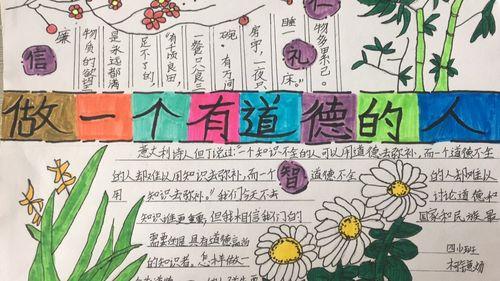 仁
礼
信
物多累己。
睡一 床。"
房宇,一夜只
碗。有万间
一餐只食三
"有千顷良田,
足不了的,
是永远都满
物质的欲望
廉
做一个有道德的人
意大利诗人但丁说过:"一个知识不全的人可以用道德去弥补,而一个道德不全
的人却难以用知识去弥补。"
智
道德不全 的人却难以
用 知识去弥补。"我们今天不去 讨论道德和
知识谁更重要,但我相信我们的 国家和民族最
需要的是具有道德高尚
的知识者。怎样做一
四 班